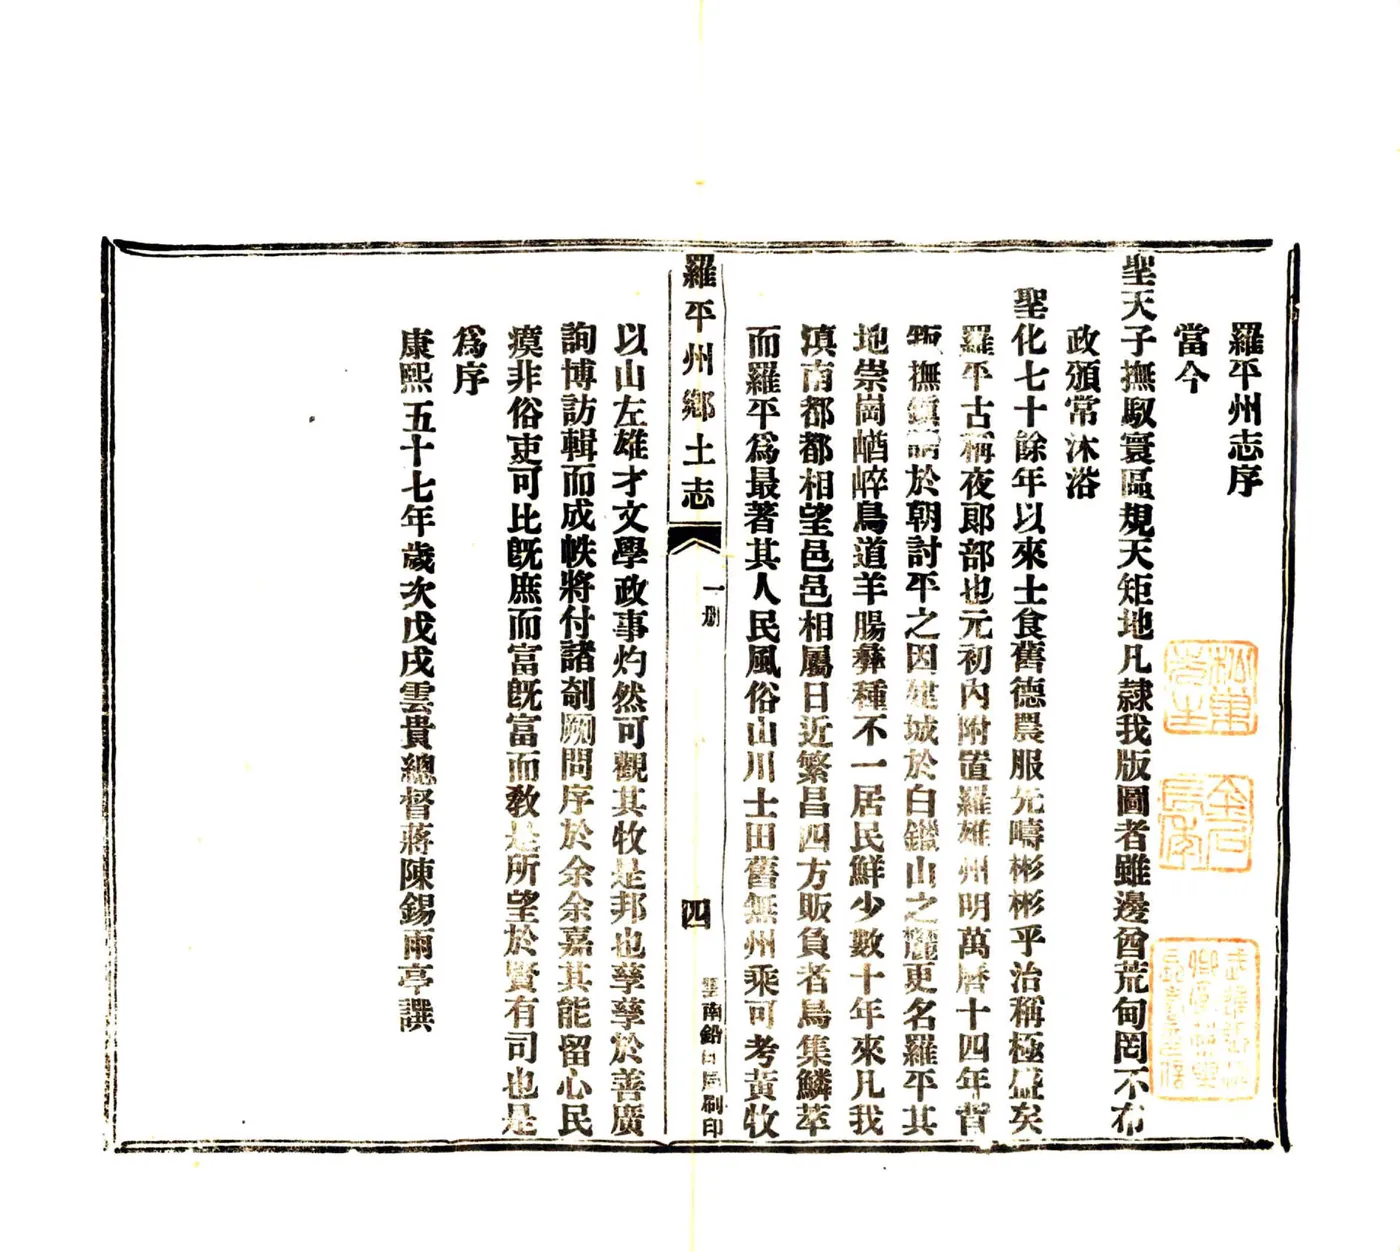 羅平州志序
當今
聖天子撫馭寰區規天矩地凡隷我版圖者雖邊酋荒甸罔不布
政頒常沐浴
聖化七十餘年以來士食舊德農服先疇彬彬乎治稱極盛矣
羅平古稱夜郎部也元初內附置羅雄州明萬曆十四年酋
叛撫鎮請於朝討平之因建城於白鑞山之麓更名羅平其
地崇崗崷崪鳥道羊腸彝種不一居民鮮少數十年來凡我
滇南都都相望邑邑相屬日近繁昌四方販負者鳥集鱗萃
而羅平爲最著其人民風俗山川士田舊無州乘可考黃牧
羅平州鄉土志
一册
四
雲南鉛印局刷印
以山左雄才文學政事灼然可觀其牧是邦也孳孳於善廣
詢博訪輯而成帙將付諸剞劂問序於余余嘉其能留心民
瘼非俗吏可比旣庶而富旣富而敎是所望於賢有司也是
爲序
康熙五十七年歲次戊戌雲貴總督蔣陳錫雨亭譔